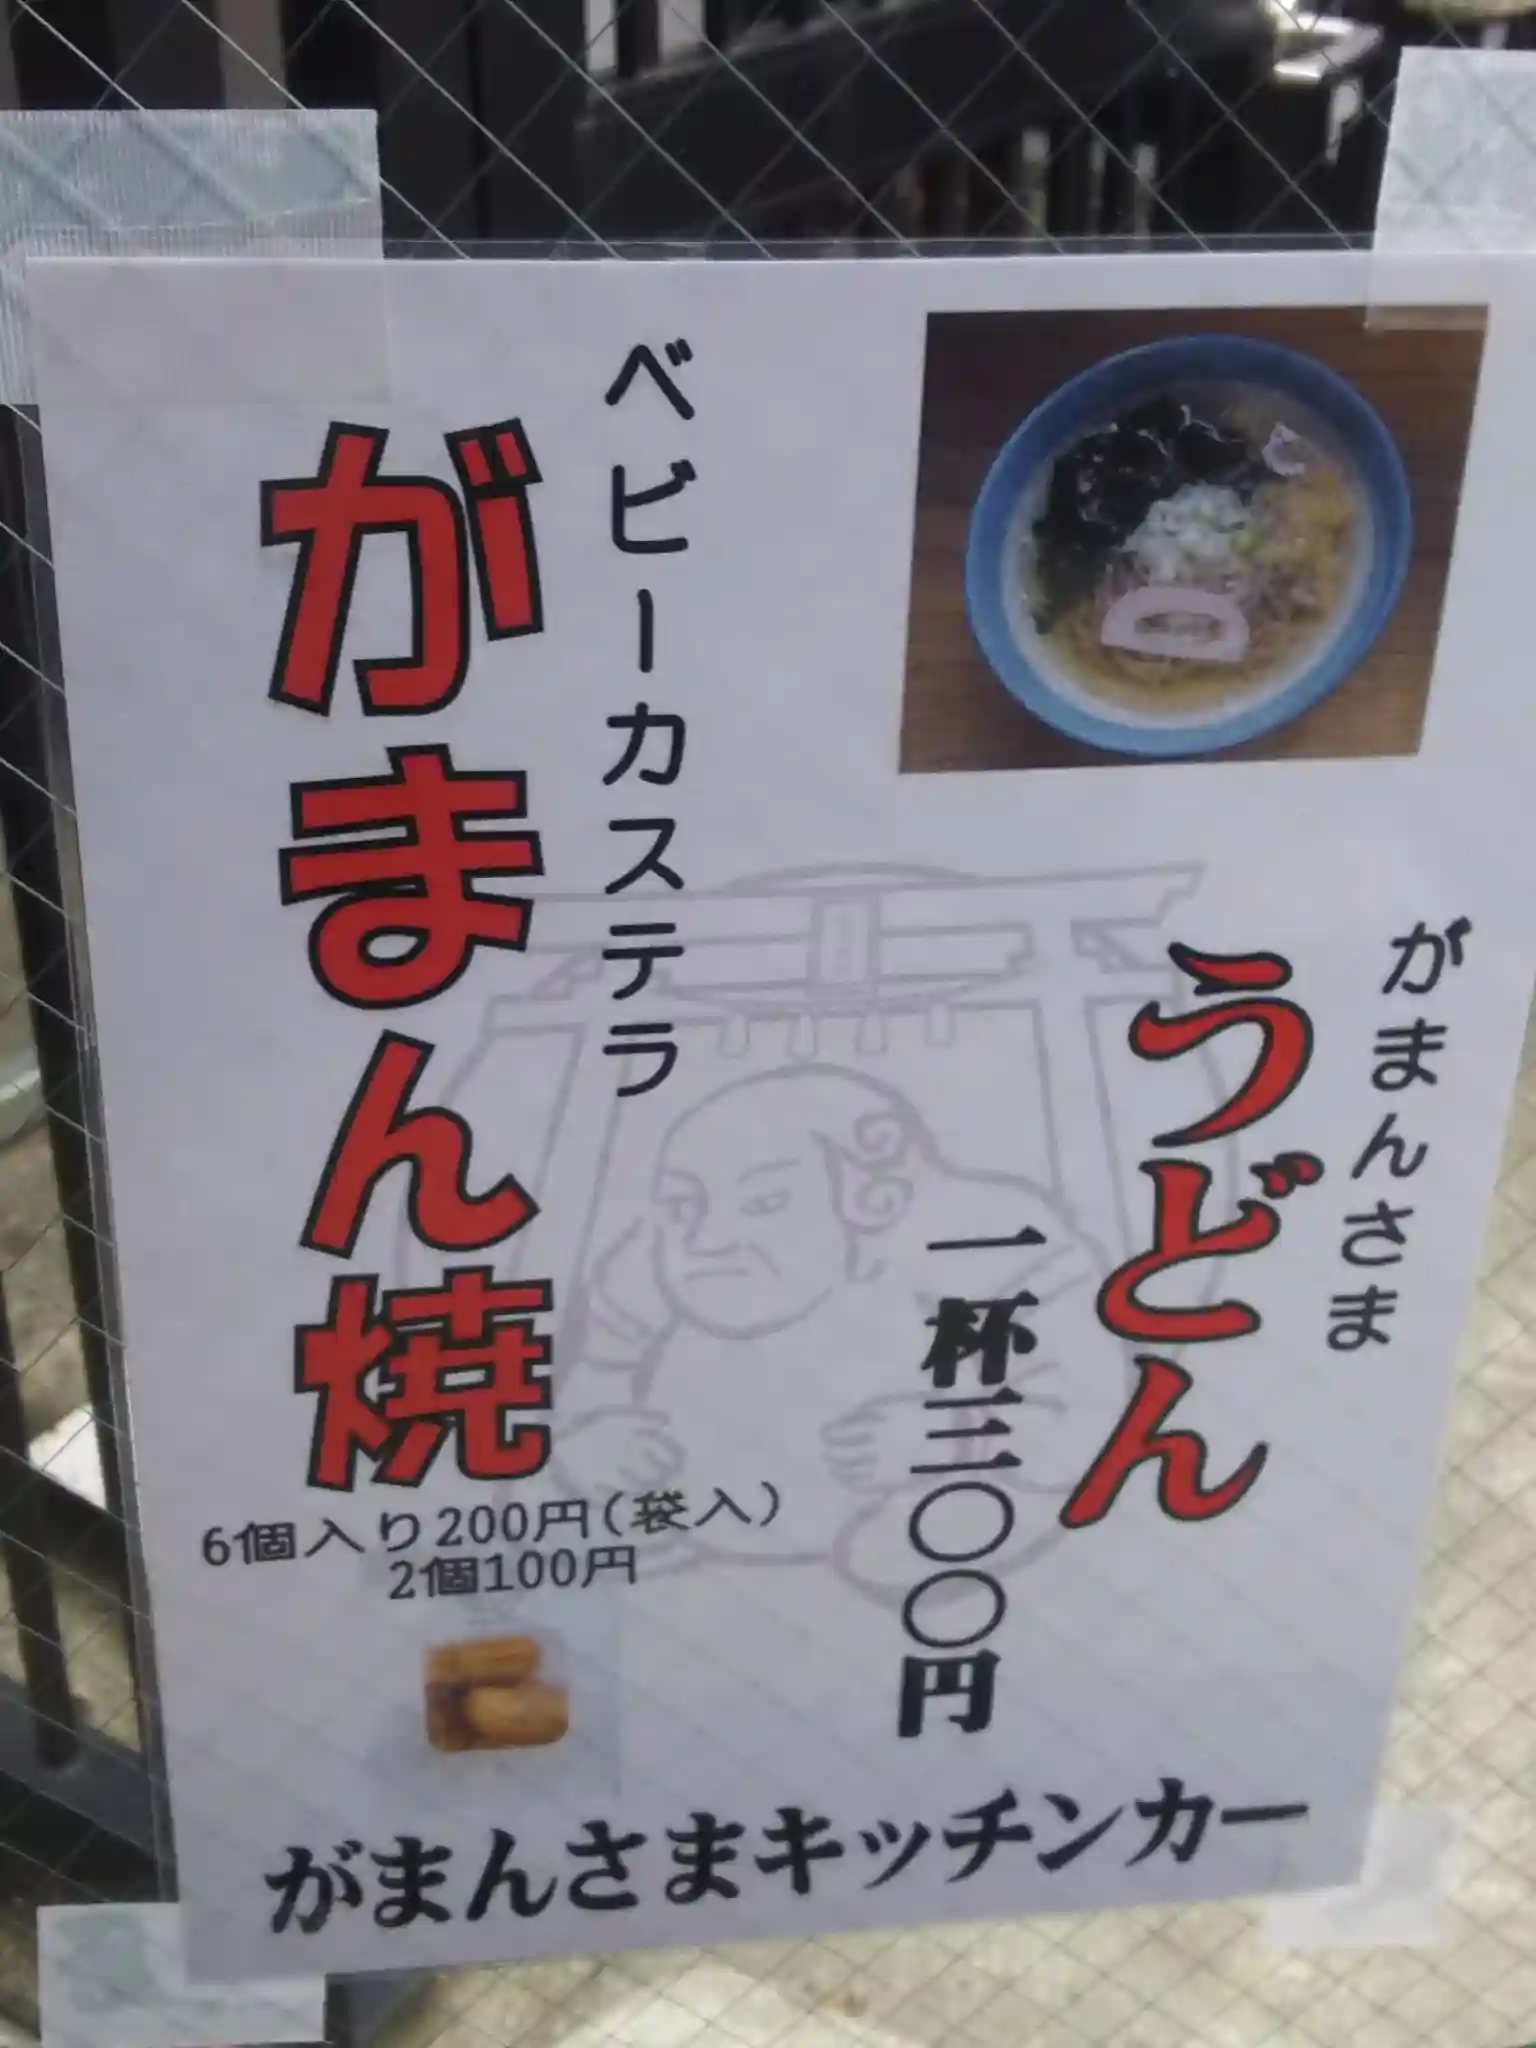 がまんさま
うどん
一杯三〇〇円
ベビーカステラ
がまん焼
6個入り200円(袋入)
2個100円
がまんさまキッチンカー